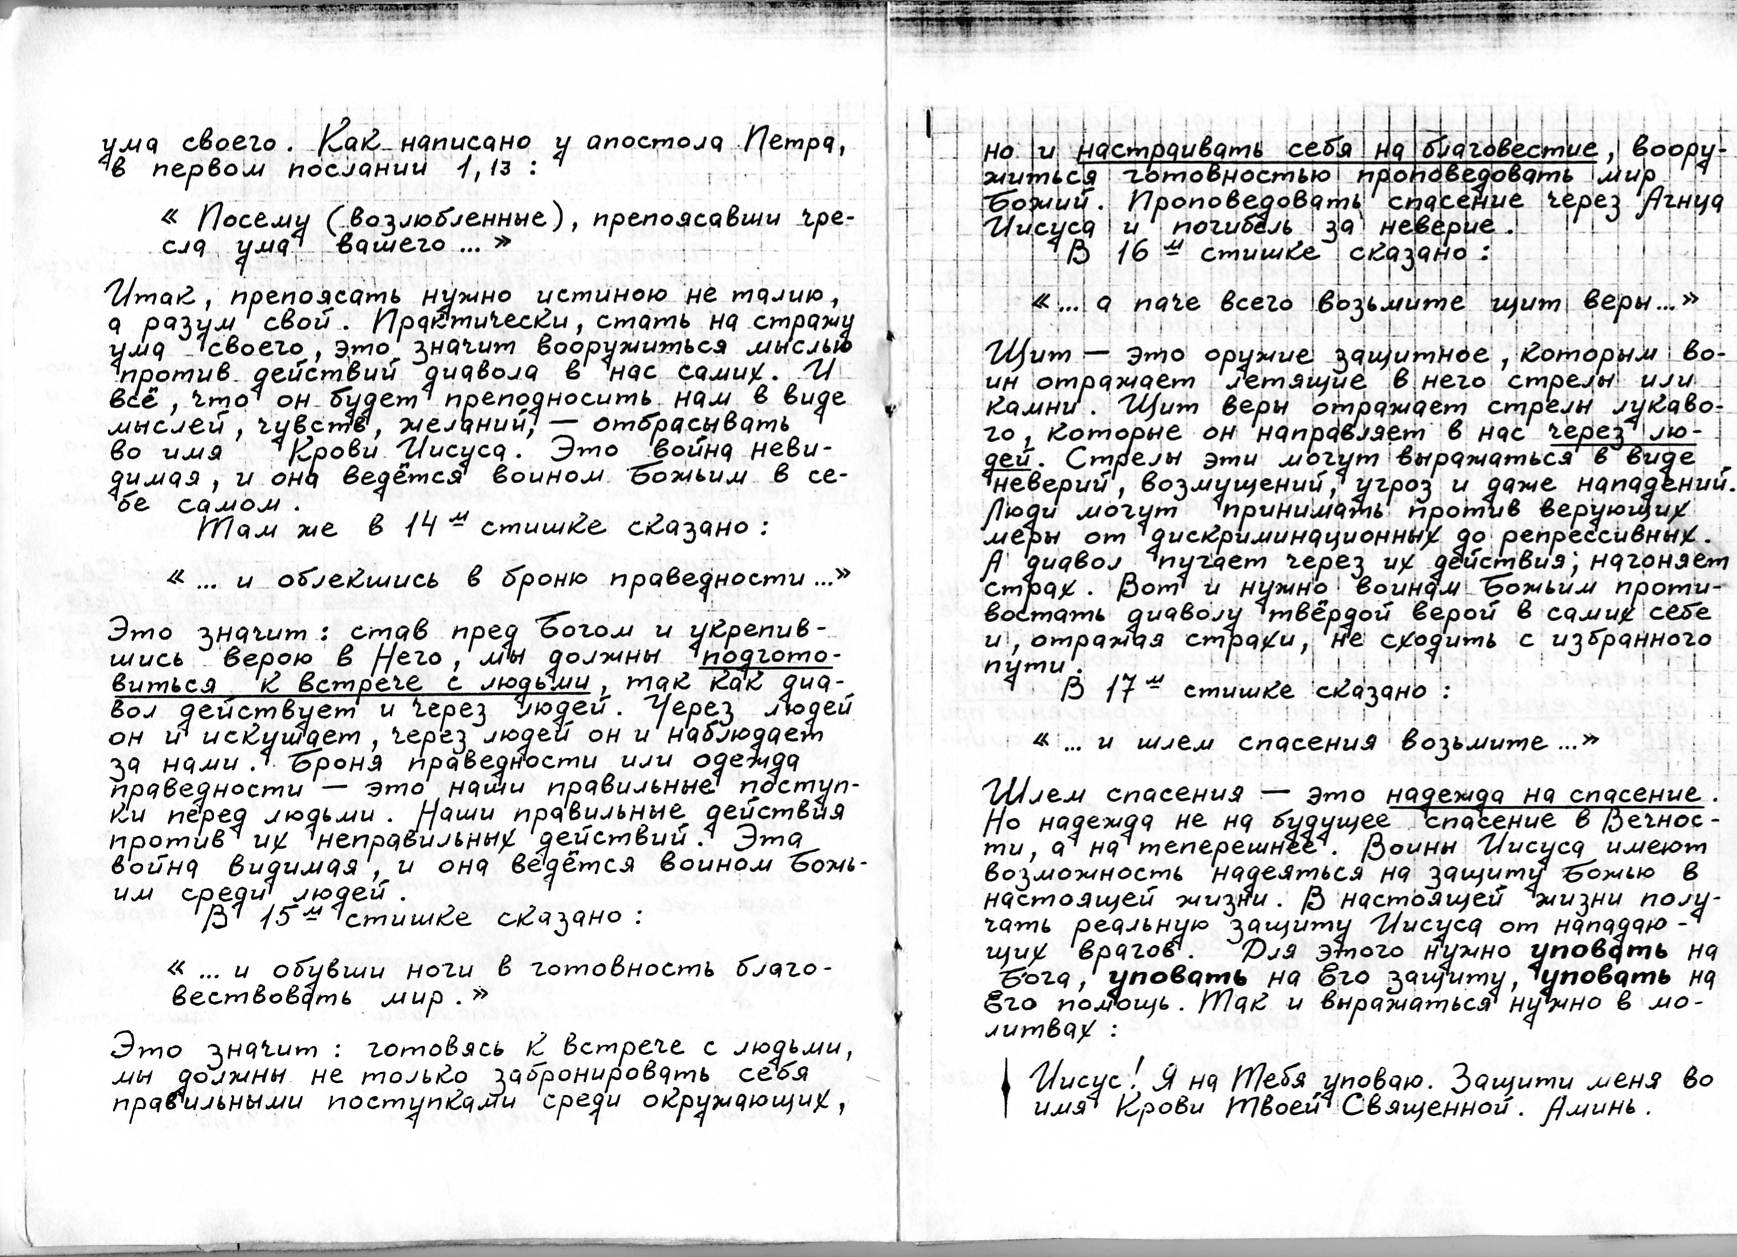 ума своего. Как написано у апостола Петра,
в первом послании 1,13:
« Посему (возлюбленные), препоясавши чре-
сла ума вашего ... »
Итак, препоясать нужно истиною не талию,
а разум свой. Практически, стать на стражу
ума своего, это значит вооружиться мыслью
против действий диавола в нас самих. И
всё, что он будет преподносить нам в виде
мыслей, чувств, желаний, — отбрасывать
во имя Крови Иисуса. Это война неви-
димая, и она ведётся воином Божьим в се-
бе самом.
Там же в 14м стишке сказано:
« ... и облекшись в броню праведности ... »
Это значит: став пред Богом и укрепив-
шись верою в Него, мы должны подгото-
виться к встрече с людьми, так как диа-
вол действует и через людей. Через людей
он и искушает, через людей он и наблюдает
за нами. Броня праведности или одежда
праведности — это наши правильные поступ-
ки перед людьми. Наши правильные действия
против их неправильных действий. Эта
война видимая, и она ведётся воином Божь-
им среди людей.
В 15м стишке сказано:
« ... и обувши ноги в готовность благо-
вествовать мир. »
Это значит: готовясь к встрече с людьми,
мы должны не только забронировать себя
правильными поступками среди окружающих,
но и настраивать себя на благовестие, воору-
житься готовностью проповедовать мир
Божий. Проповедовать спасение через Агнца
Иисуса и погибель за неверие.
В 16м стишке сказано:
« ... а паче всего возьмите щит веры ... »
Щит — это оружие защитное, которым во-
ин отражает летящие в него стрелы или
камни. Щит веры отражает стрелы лукаво-
го, которые он направляет в нас через лю-
дей. Стрелы эти могут выражаться в виде
неверий, возмущений, угроз и даже нападений.
Люди могут принимать против верующих
меры от дискриминационных до репрессивных.
А диавол пугает через их действия; нагоняет
страх. Вот и нужно воинам Божьим проти-
востать диаволу твёрдой верой в самих себе
и, отражая страхи, не сходить с избранного
пути.
В 17м стишке сказано:
« ... и шлем спасения возьмите ... »
Шлем спасения — это надежда на спасение.
Но надежда не на будущее спасение в Вечнос-
ти, а на теперешнее. Воины Иисуса имеют
возможность надеяться на защиту Божью в
настоящей жизни. В настоящей жизни полу-
чать реальную защиту Иисуса от нападаю-
щих врагов. Для этого нужно уповать на
Бога, уповать на Его защиту, уповать на
Его помощь. Так и выражаться нужно в мо-
литвах:
Иисус! Я на Тебя уповаю. Защити меня во
имя Крови Твоей Священной. Аминь.